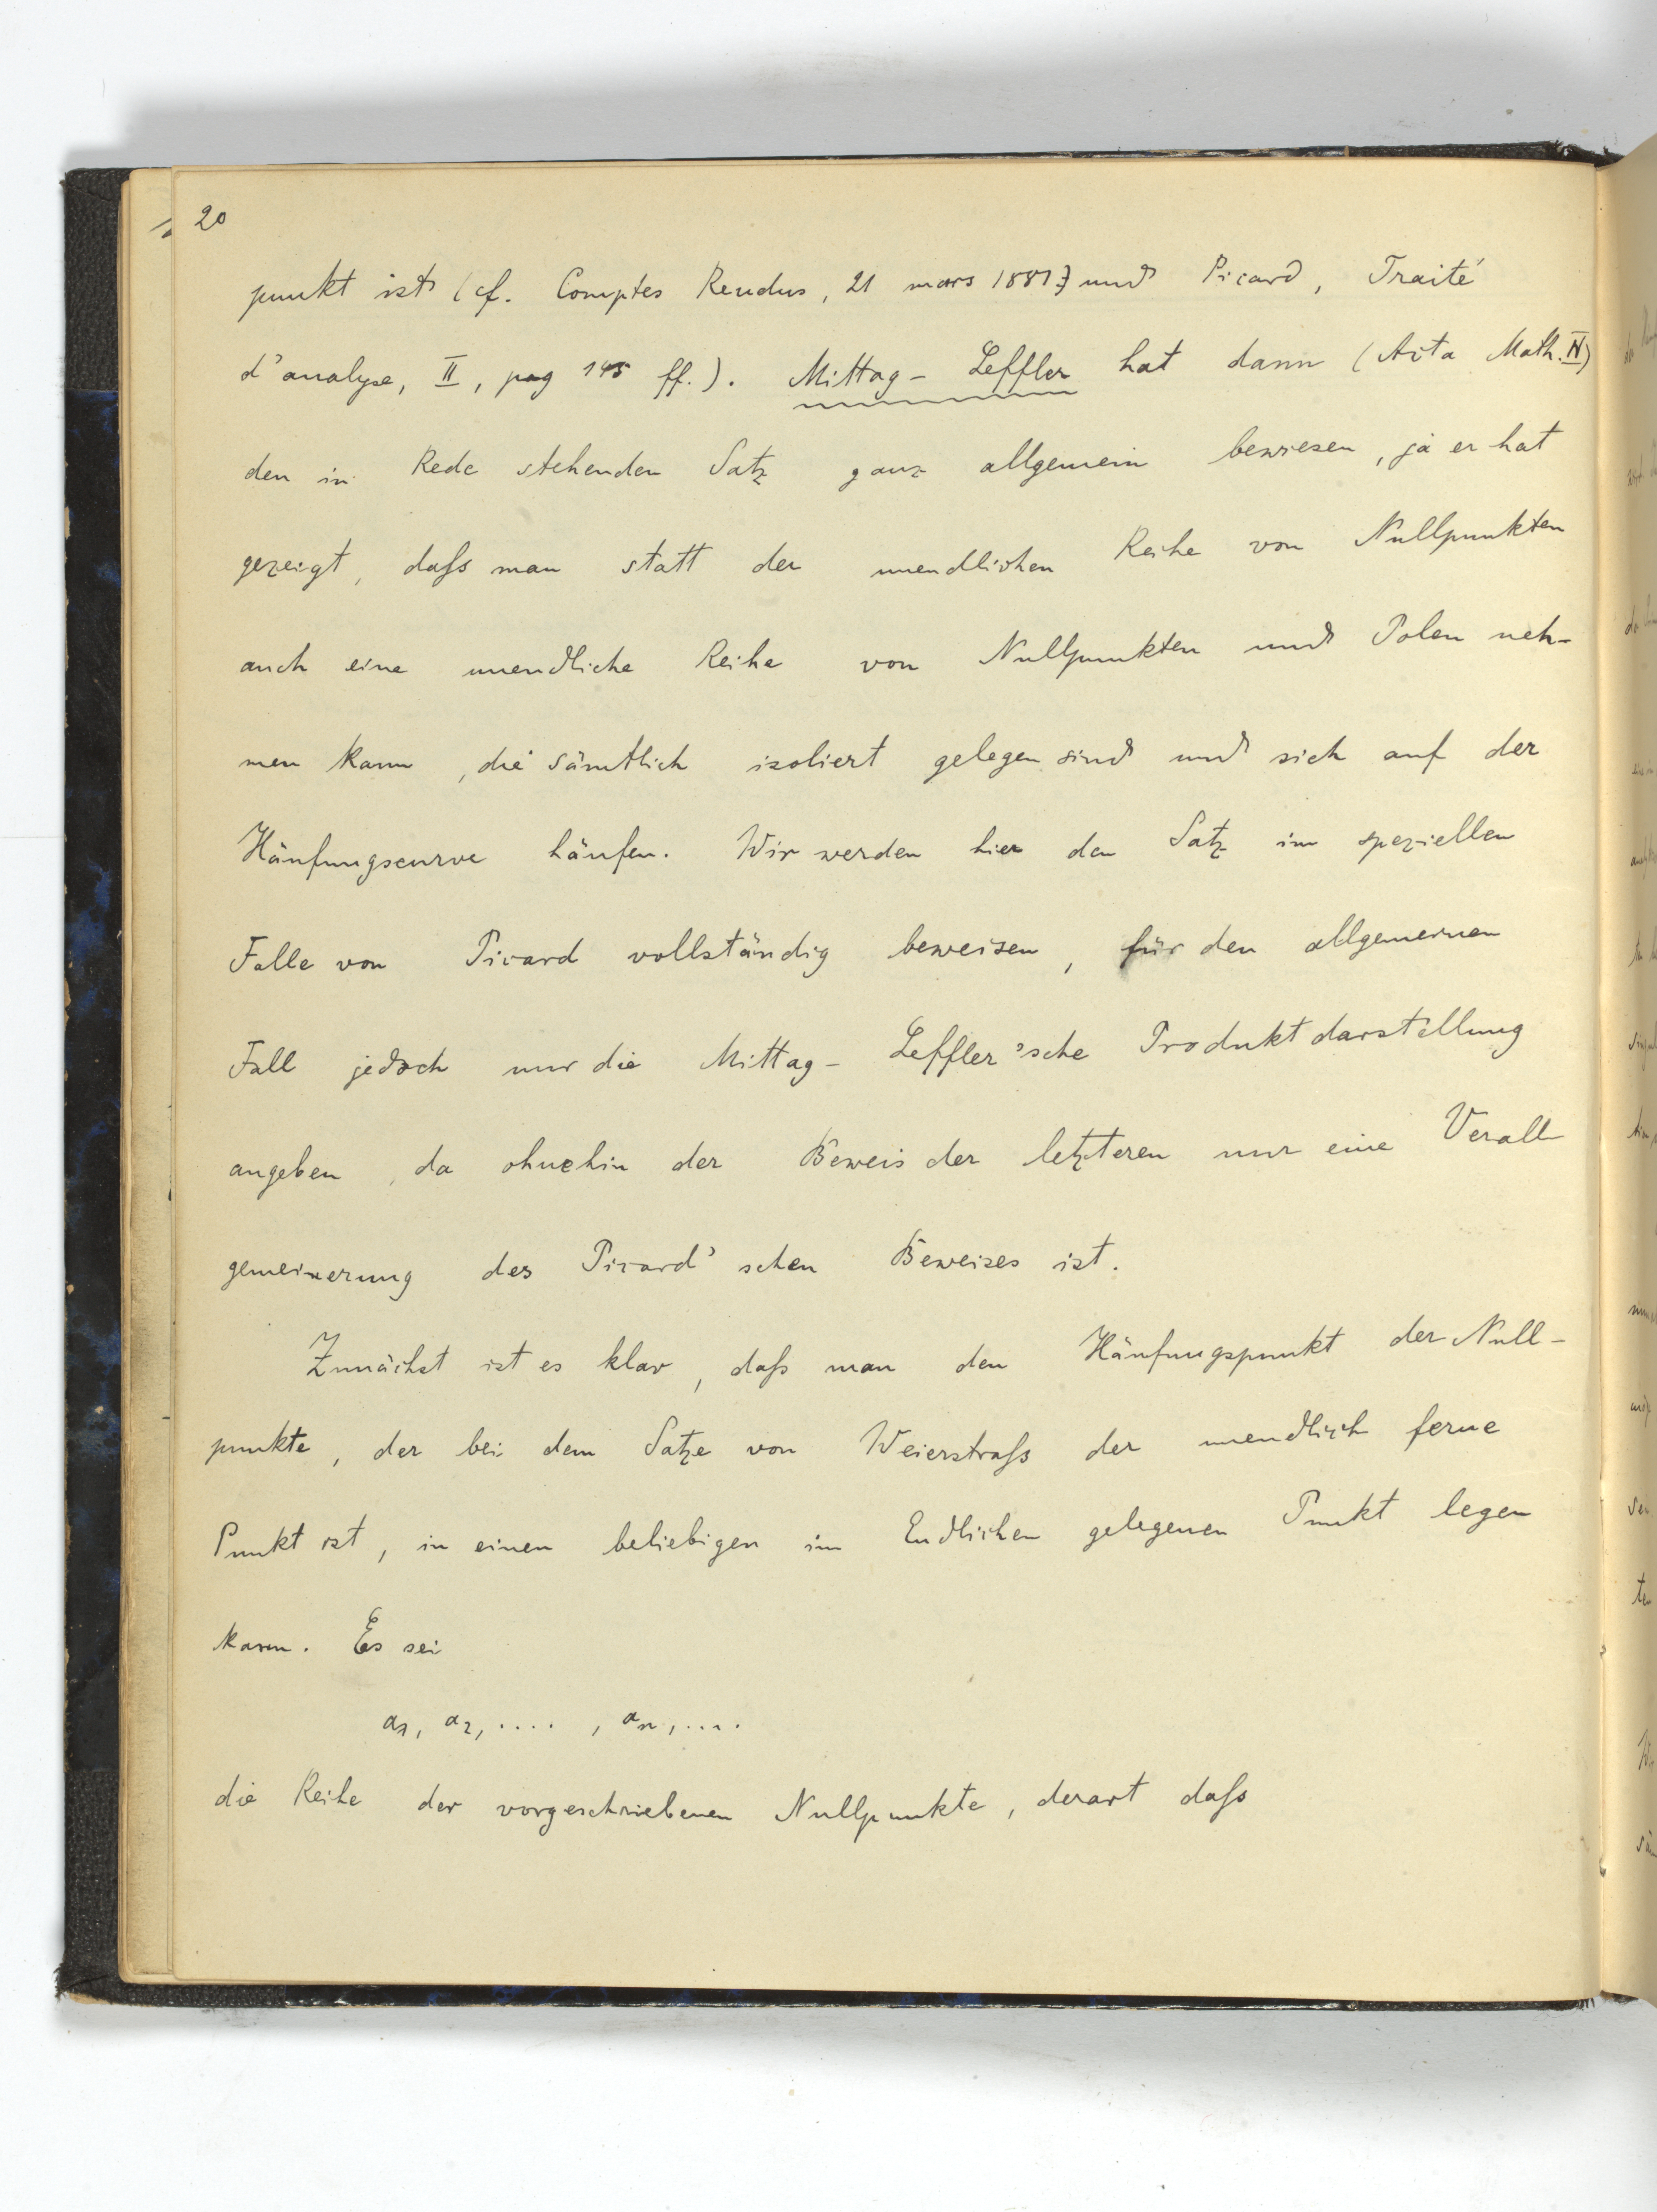 20
punkt ist (cf. Comptes Rendus, 21 mars 1881) und Picard, Traité
d'analyse, II, pag 145 ff.). Mittag-Leffler hat dann (Acta Math. IV)
den in Rede stehenden Satz ganz allgemein bewiesen, ja er hat
gezeigt, daſs man statt der unendlichen Reihe von Nullpunkten
auch eine unendliche Reihe von Nullpunkten und Polen neh-
men kann, die sämtlich isoliert gelegen sind und sich auf der
Häufungscurve häufen. Wir werden hier den Satz im speziellen
Falle von Picard vollständig beweisen, für den allgemeinen
Fall jedoch nur die Mittag-Leffler'sche Produktdarstellung
angeben, da ohnehin der Beweis der letzteren nur eine Verall-
gemeinerung des Picard'schen Beweises ist.
Zunächst ist es klar, daſs man den Häufungspunkt der Null-
punkte, der bei dem Satze von Weierstraſs der unendlich ferne
Punkt ist, in einen beliebigen im Endlichen gelegenen Punkt legen
kann. Es sei
a₁, a₂, ...., aₙ, ....
die Reihe der vorgeschriebenen Nullpunkte, derart daſs